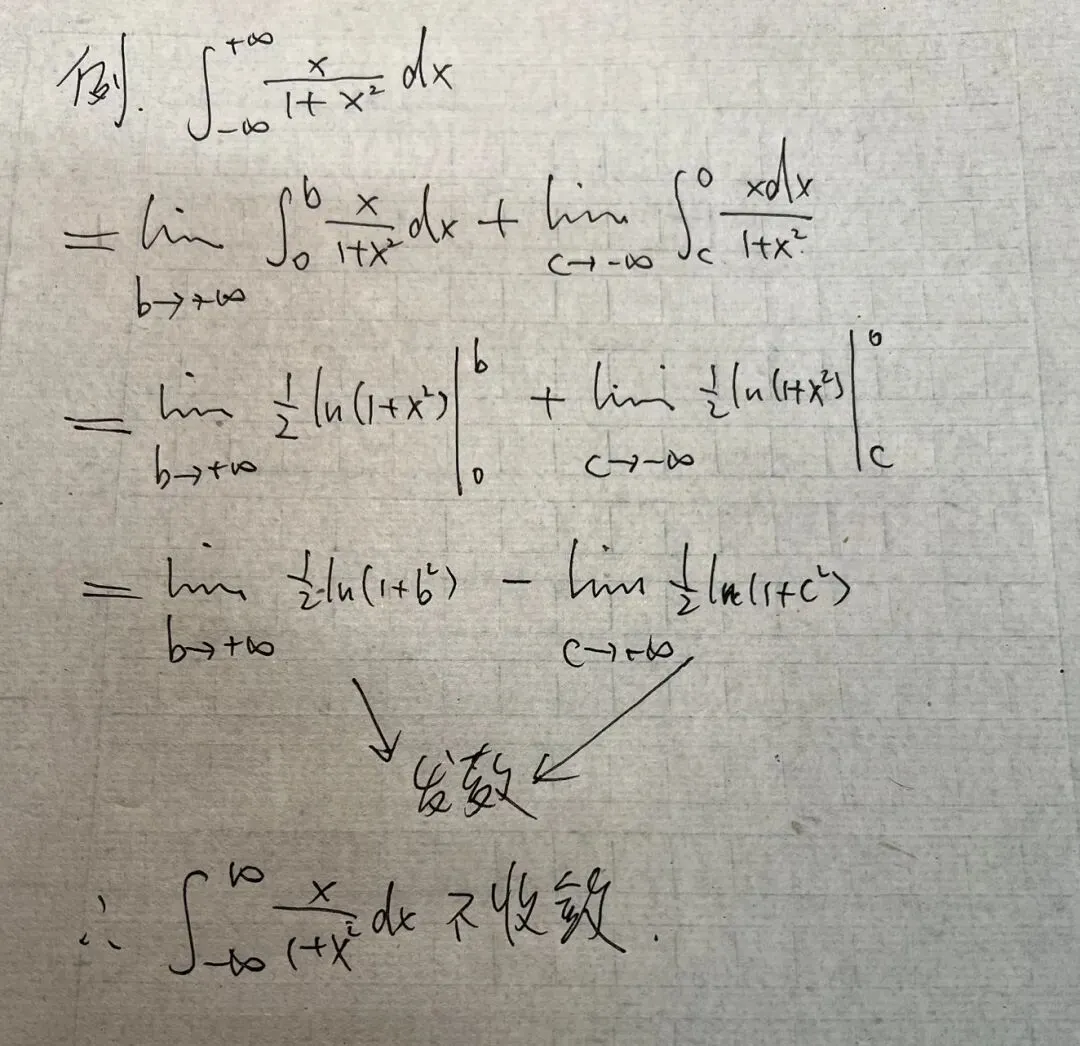 例. ∫_{-∞}^{+∞} x/(1+x²) dx
= lim_{b→+∞} ∫_0^b x/(1+x²) dx + lim_{c→-∞} ∫_c^0 xdx/(1+x²)
= lim_{b→+∞} ½ ln(1+x²)|_0^b + lim_{c→-∞} ½ ln(1+x²)|_c^0
= lim_{b→+∞} ½ ln(1+b²) - lim_{c→-∞} ½ ln(1+c²)
发散
∴ ∫_{-∞}^{∞} x/(1+x²) dx 不收敛.